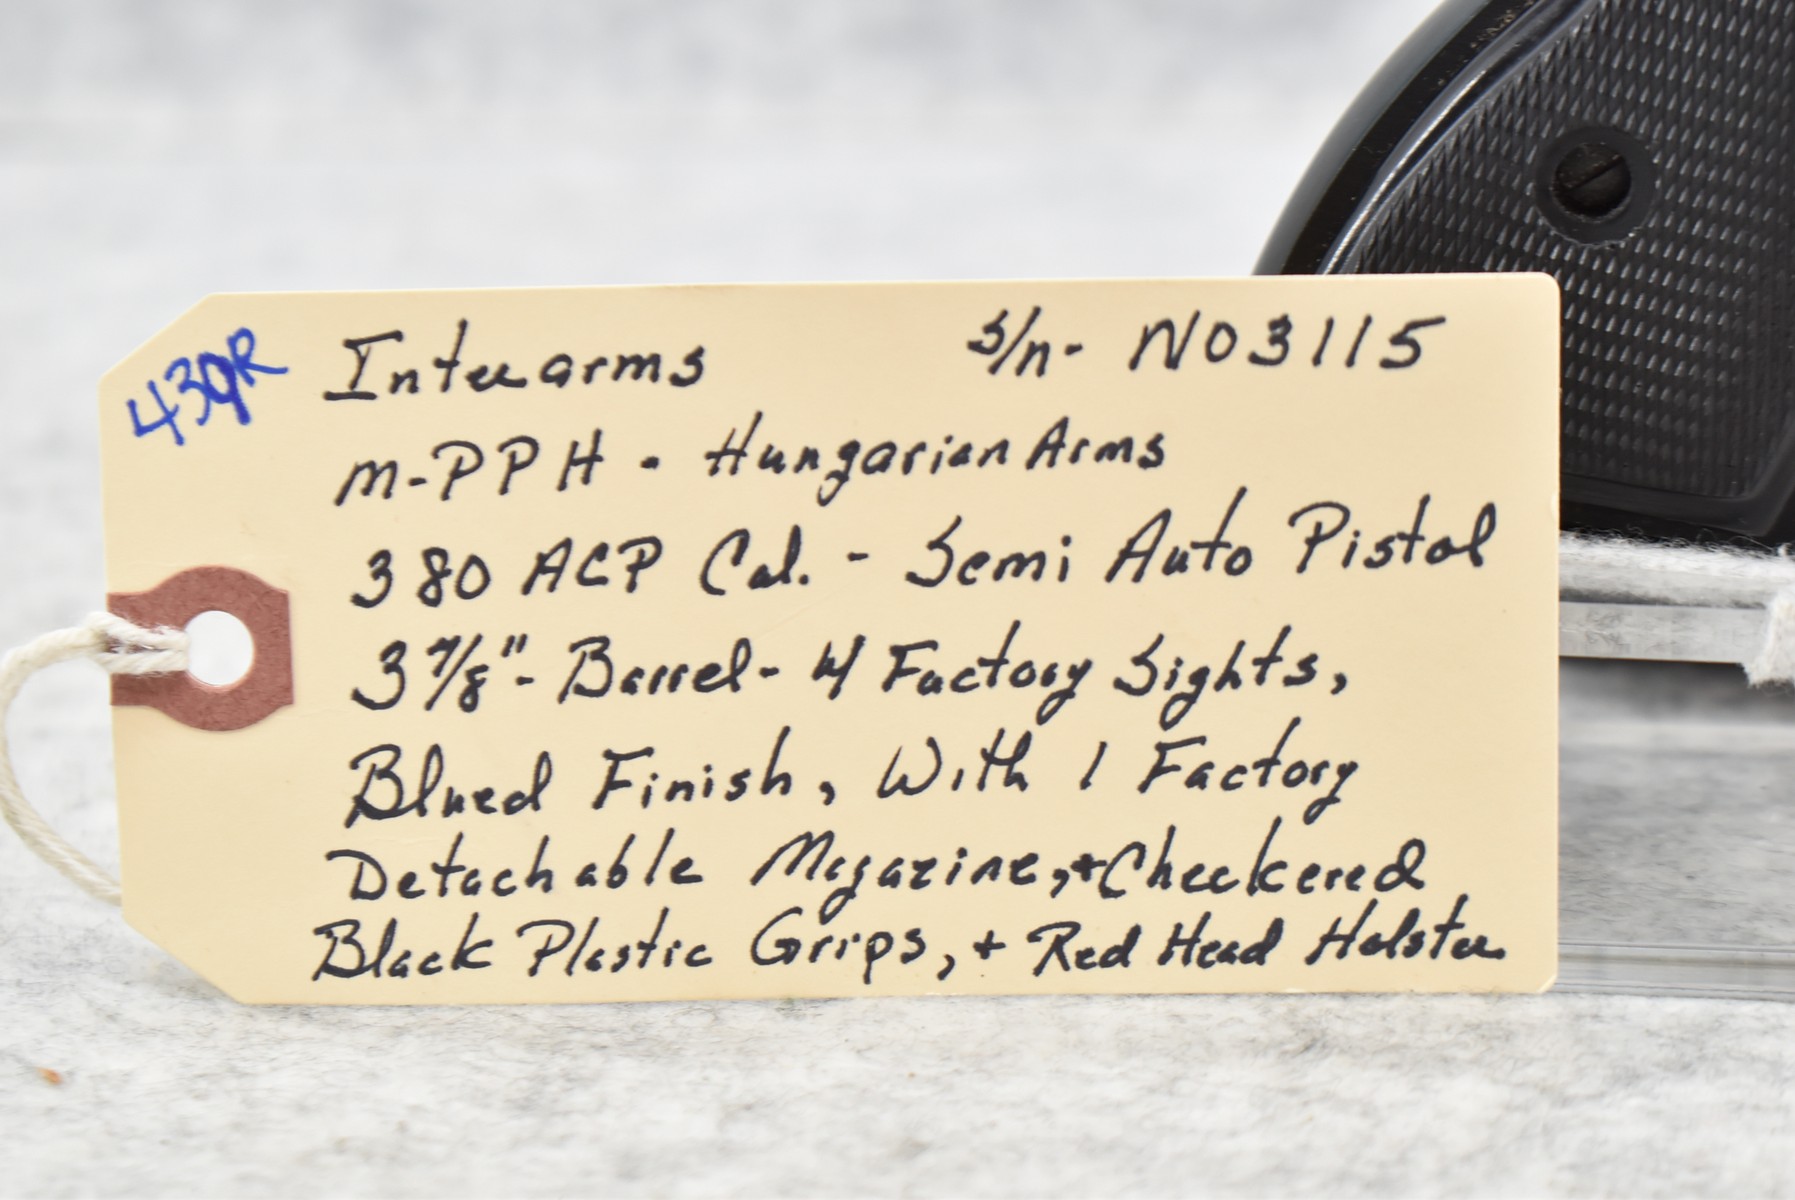 430R
Interarms s/n- N03115
M-PPH - Hungarian Arms
380 ACP Cal. - Semi Auto Pistol
3 7/8" - Barrel - W/ Factory Sights,
Blued Finish, With 1 Factory
Detachable Magazine, + Checkered
Black Plastic Grips, + Red Head Holster